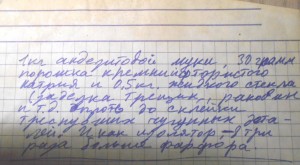 1 кг андезитовой муки, 30 грамм
порошка кремнийфтористого
натрия и 0,5 кг жидкого стекла
(заделка трещин, раковин
и т.д. вплоть до склейки
треснувших чугунных дета-
лей. И как изолятор - в три
раза больше фарфора.